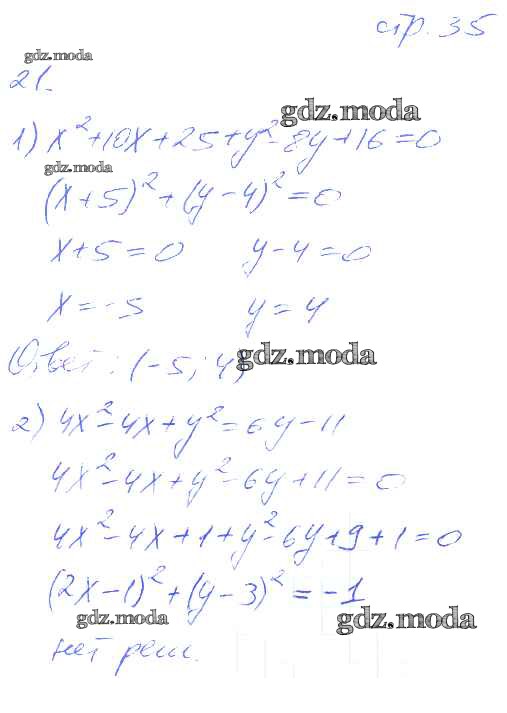 стр. 35
gdz.moda
21.
gdz.moda
1) x²+10x+25+y²-8y+16=0
gdz.moda
(x+5)²+(y-4)²=0
x+5=0 y-4=0
x=-5 y=4
Ответ: (-5; 4)
gdz.moda
2) 4x²-4x+y²=6y-11
4x²-4x+y²-6y+11=0
4x²-4x+1+y²-6y+9+1=0
(2x-1)²+(y-3)²=-1
gdz.moda
gdz.moda
нет реш.